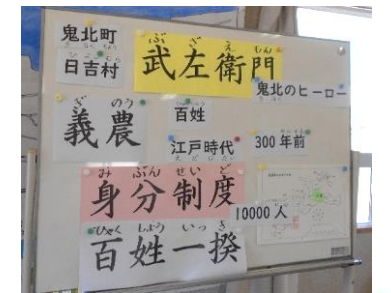 鬼北町
日吉村
ぶざえもん
武左衛門
鬼北のヒーロー
ぎのう
義農
百姓
江戸時代
300年前
みぶんせいど
身分制度
10000人
ひゃくしょういっき
百姓一揆